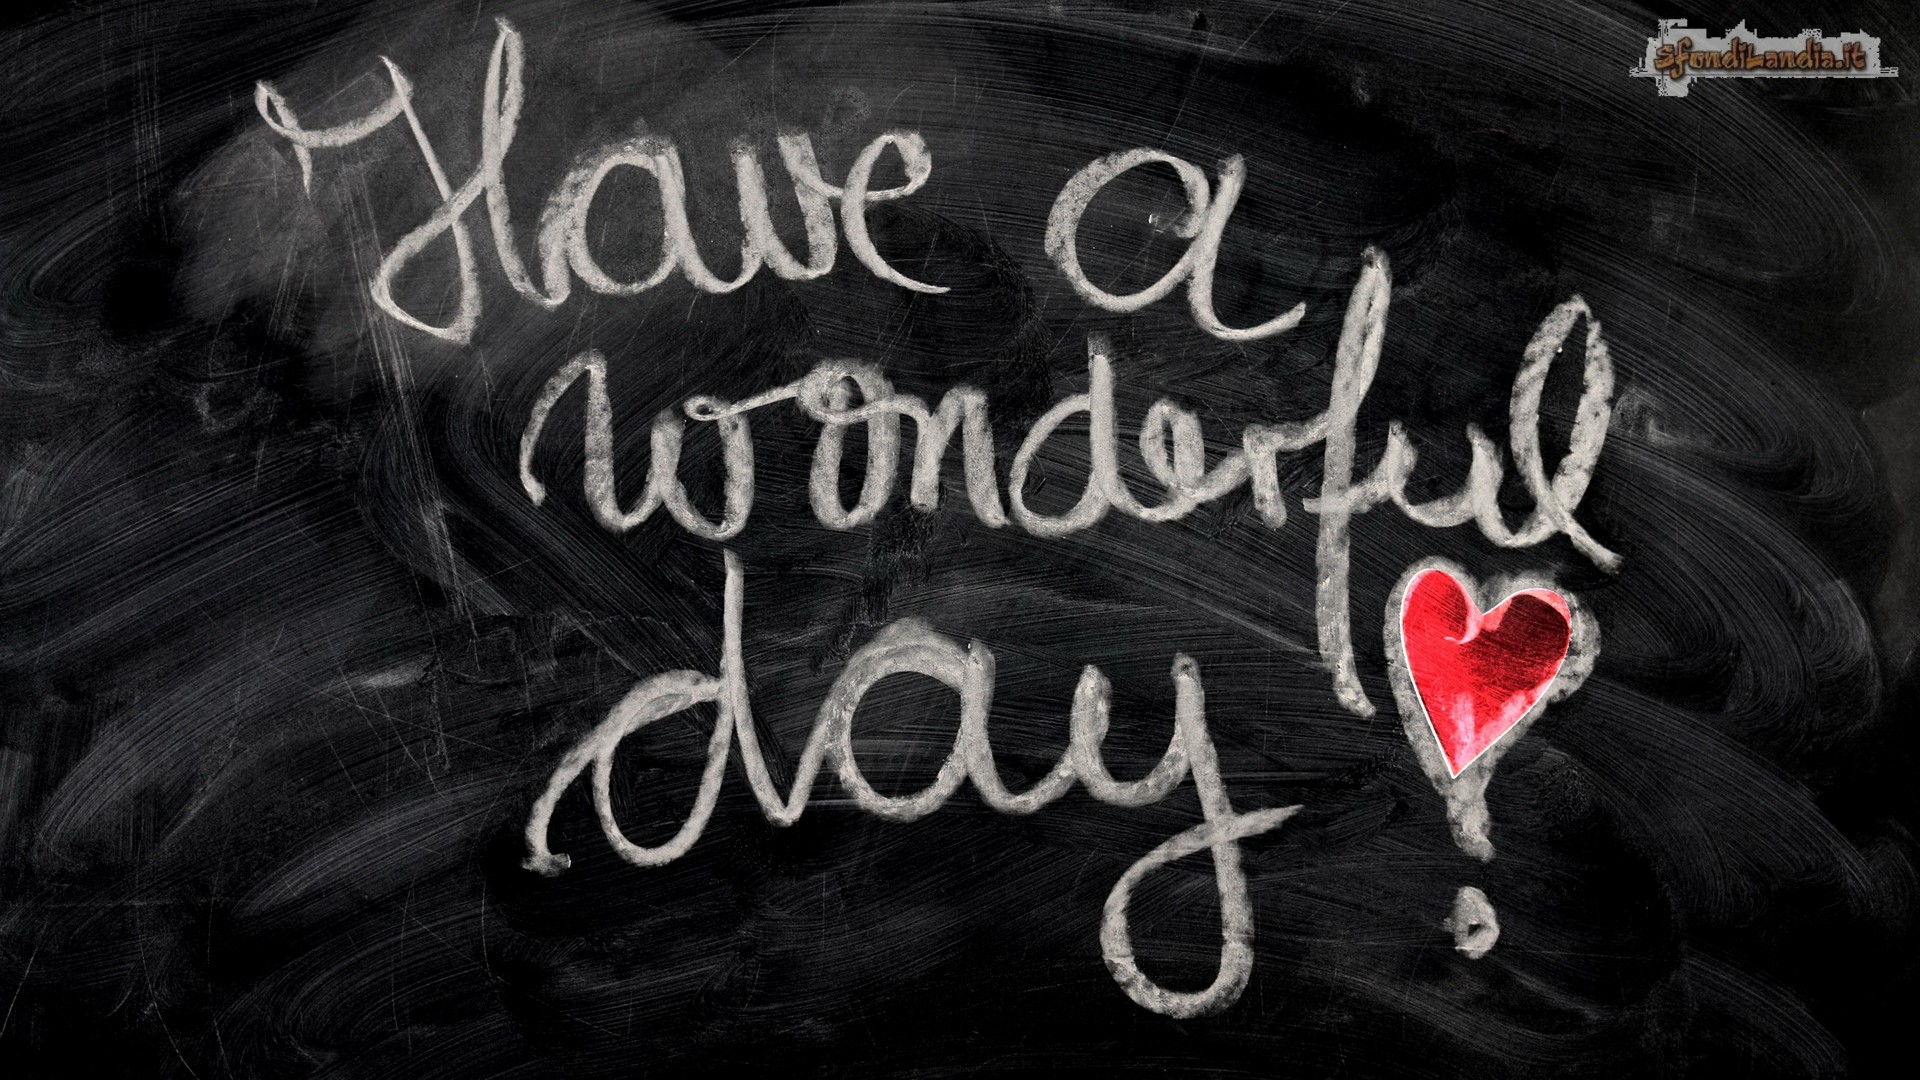 SfondiLandia.it
Have a
wonderful
day!